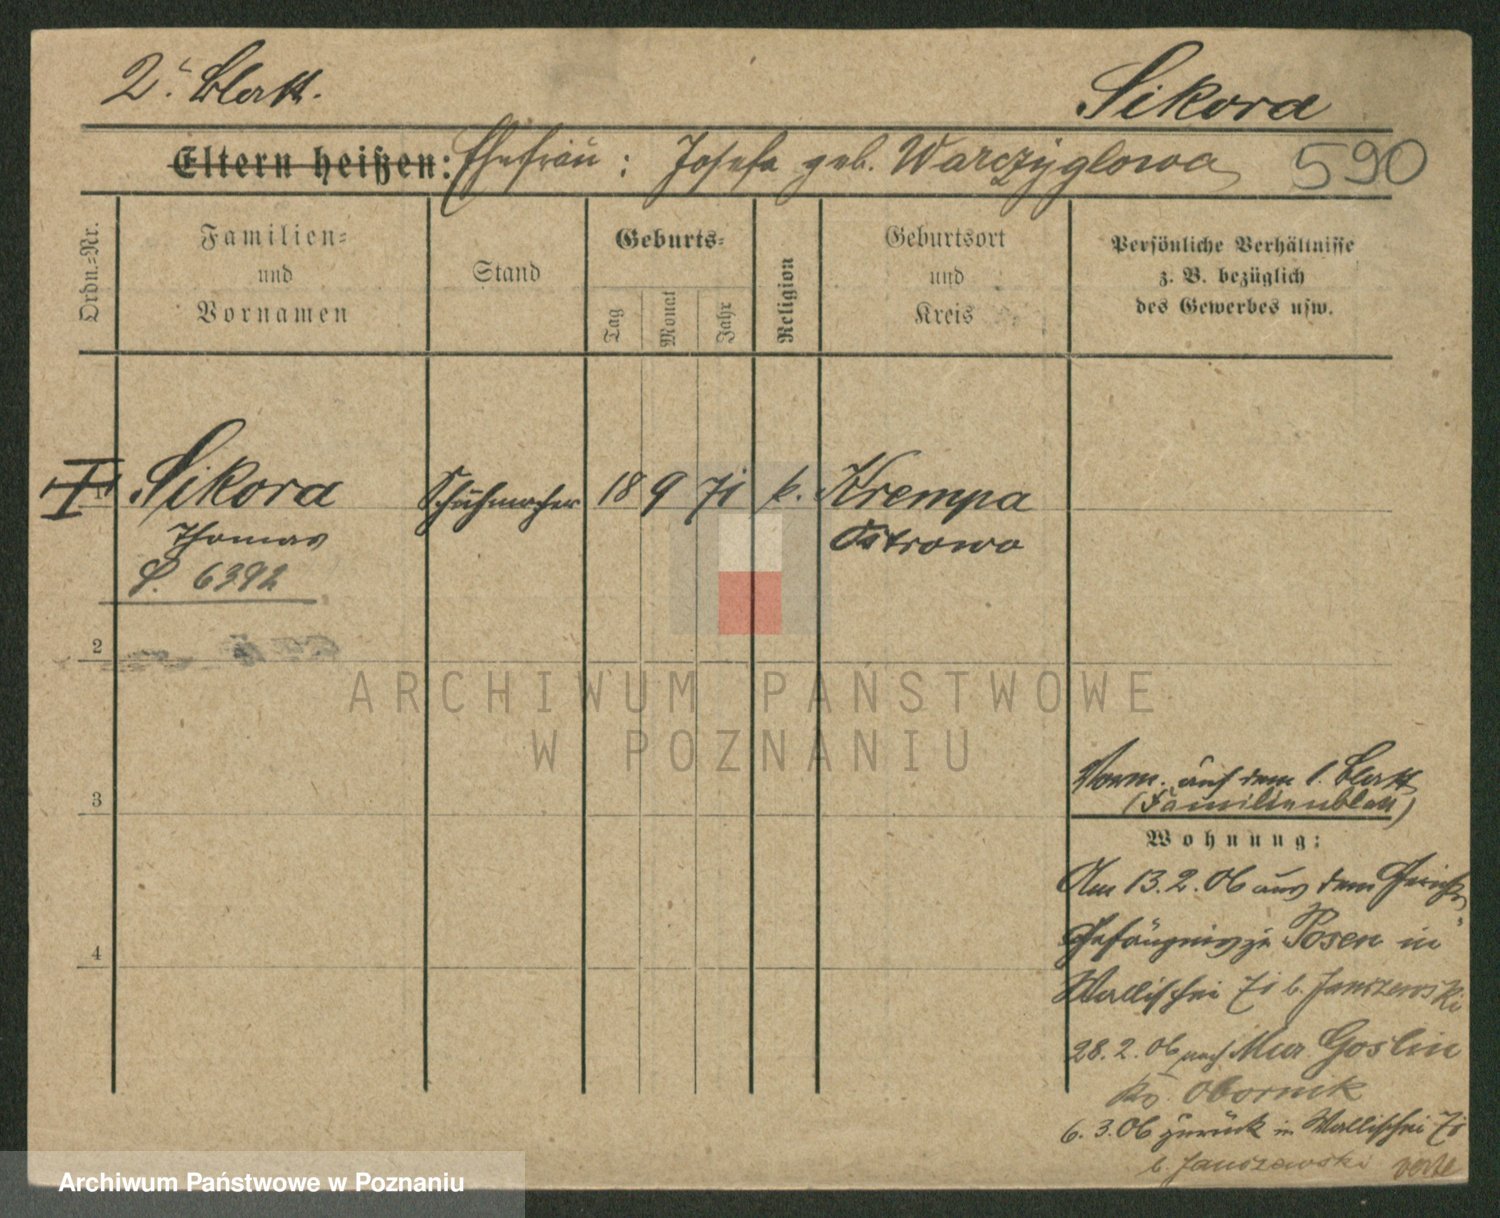 2. Blatt.
Sikora
Eltern heißen: Ehefrau: Josefa geb. Warczyglowa 590
Ordn.-Nr.
Familien-
und
Vornamen
Stand
Geburts-
Tag
Monat
Jahr
Religion
Geburtsort
und
Kreis
Persönliche Verhältnisse
z. B. bezüglich
des Gewerbes usw.
I Sikora Schuhmacher 18 9 71 k. Krempa
Thomas Ostrowo
S. 6392
2
3
4
ARCHIWUM PAŃSTWOWE
W POZNANIU
Verm. auf dem 1. Blatt
(Familienblatt)
Wohnung:
Am 13.2.06 aus dem Gerichts-
Gefängnis zu Posen in
Wallischei 71 b. Janszewski
28.2.06 nach Mur Goslin
Kr. Obornik
6.3.06 zurück in Wallischei 71
b. Janszewski verte
Archiwum Państwowe w Poznaniu